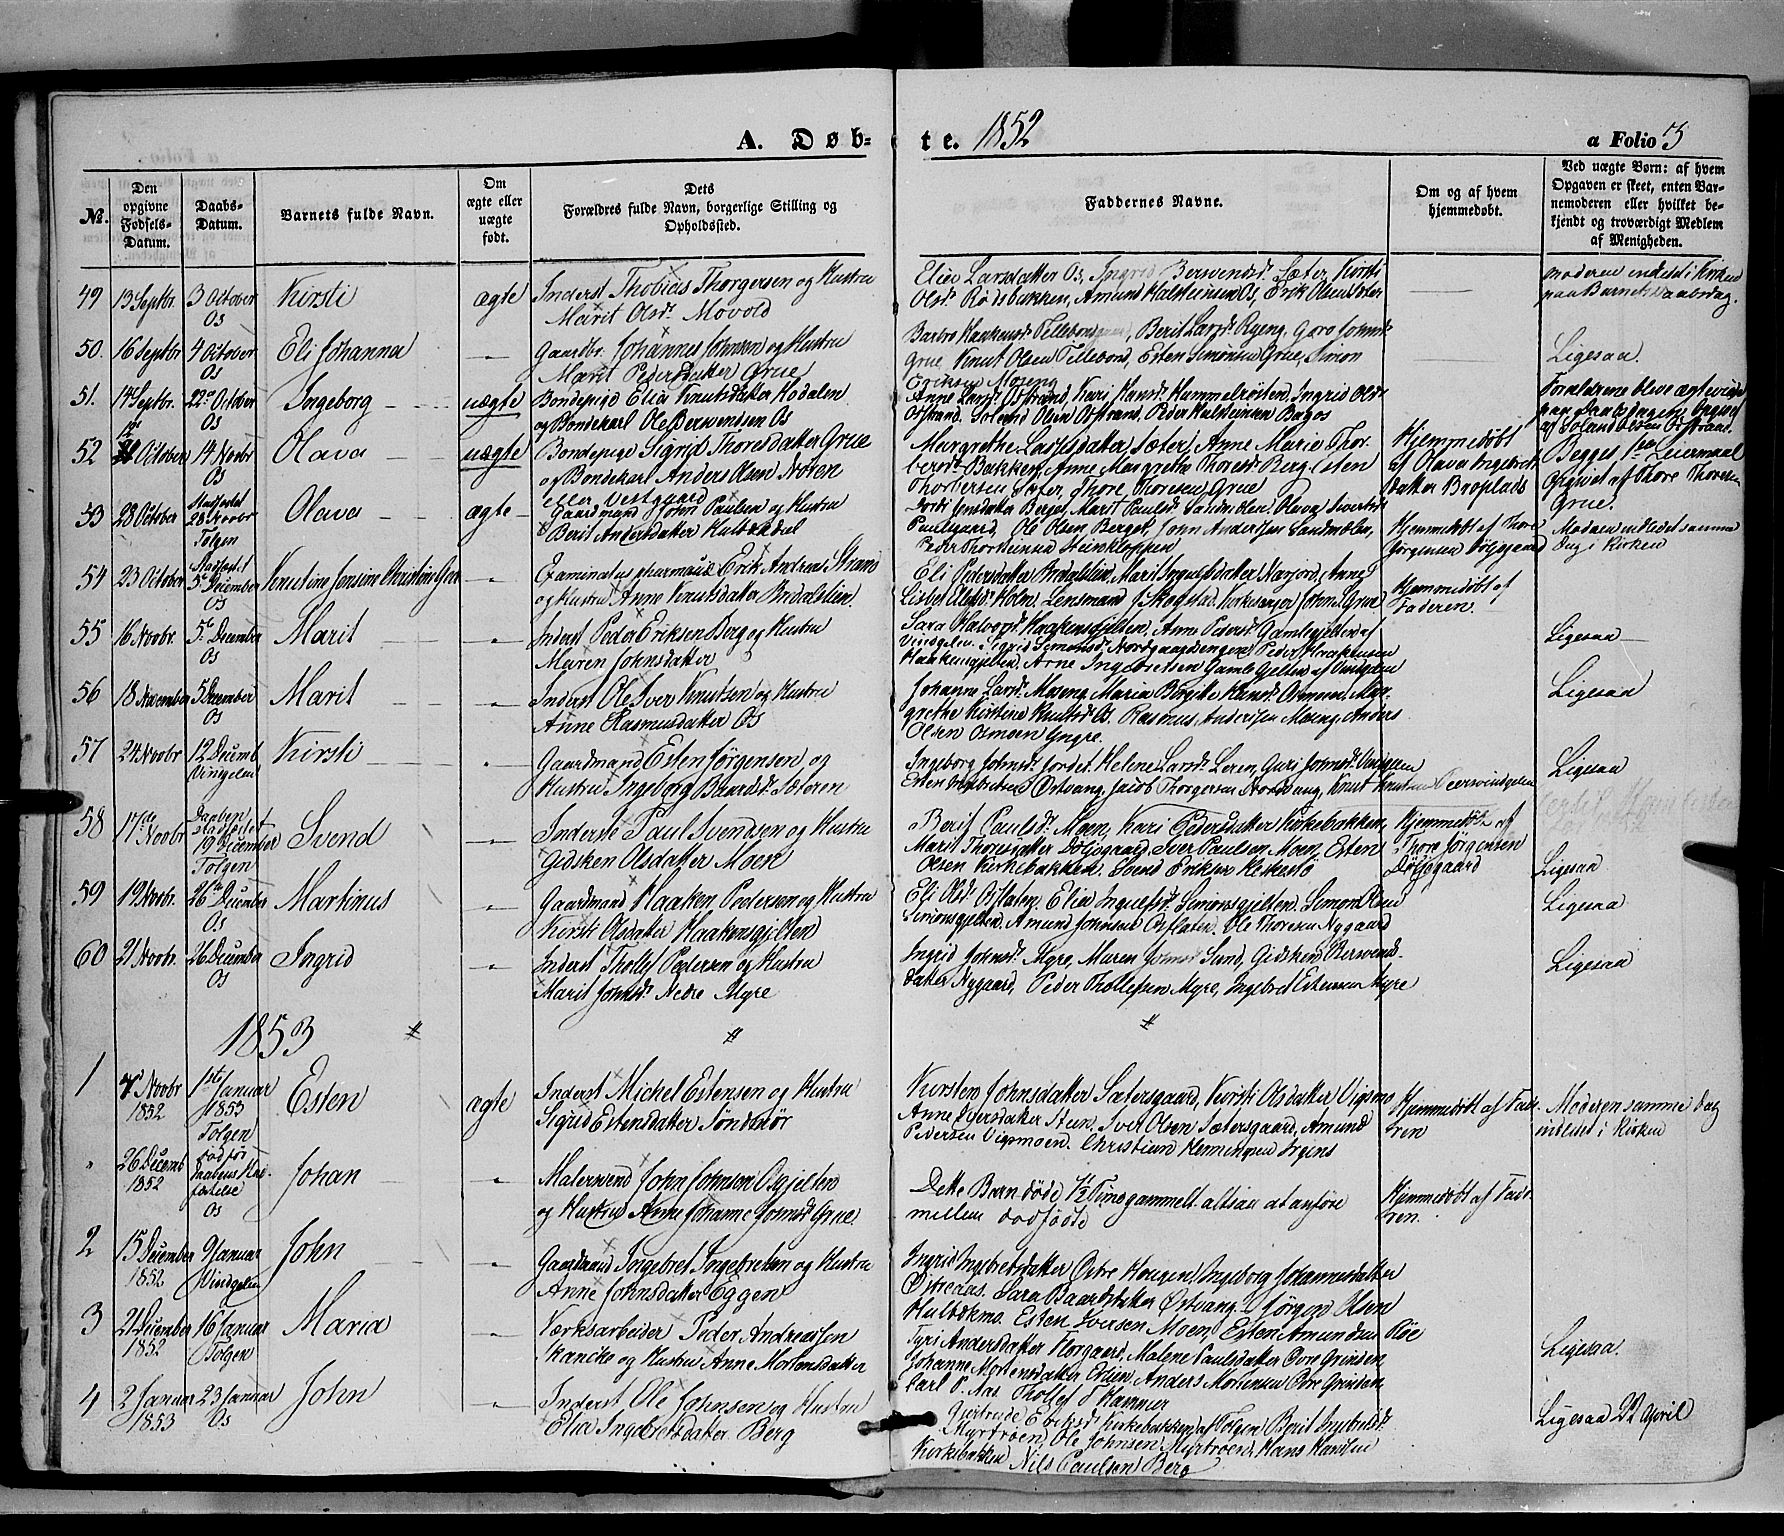 A. Døb-te. 1852
a Folio 3
No.
Den opgivne Fødsels-Datum.
Daabs-Datum.
Barnets fulde Navn.
Om ægte eller uægte født.
Dets Forældres fulde Navn, borgerlige Stilling og Opholdssted.
Faddernes Navne.
Om og af hvem hjemmedøbt.
Ved uægte Børn: af hvem Opgaven er skeet, enten Barnemoderen eller hvilket bekjendt og troværdigt Medlem af Menigheden.
49 13 Septbr. 3 October Os Kirsti ægte
Inderst Thobias Thorgersen og Hustru
Marit Olsdr. Movold
Eliee Larsdatter Os, Ingrid Berwendsdr. Sæter, Kirsti
Olsdr. Rødsbakken, Amund Halsteinsen Os, Erik Olsen Sæter
Moderen indledet i Kirken
paa Barnets Daabsdag.
50. 16 Septbr 4 October Os Eli Johanna
Gaardbr. Johannes Johnsen og Hustru
Marit Pedersdatter Grue
Berit Larsdr. Ryeng, Goro Johnsdr.
Grue, Knut Olsen Tillebond, Esten Simonsen Grue, Simon
Eriksen Moseng
Ligesaa.
51. 14 Septbr. 22 October Os Ingeborg uægte
Bondepige Elia Knutsdatter Hodalen
og Bondekarl Ole Berwendsen Os
Anne Larsdr. Østrand, Kari Hansdr. Hummelvolden, Ingrid Olsdr.
Østrand, Soland Olsen Østrand, Peder Halsteinsen Bagos
Forældrene bleve ægteviede
paa Daabsdagen. Opgivet
af Soland Olsen Østrand.
52 October 14 Novbr Os Olava uægte
Bondepige Sigrid Thoresdatter Grue
og Bondekarl Anders Olsen Noren
eller Vestgaard
Margrethe Larsdatter Sæter, Anne Marie Thor-
bersdr. Bakken, Anne Margrethe Thoresdr. Berg, Esten
Thorbersen Sæter, Thore Thoresen Grue
Hjemmedøbt
af Olava Ingebrets
datter Broplads
Begges 1ste Leiermaal
Opgivet af Thore Thoresen
Grue.
53 28 October Stadfæstet 28 Novbr Tolgen Olava ægte
Gaardmand John Paulsen og Hustru
Berit Andersdatter Hulbækdal
Dorte Knutsdatter Berget, Marit Paulsdr. Sandmælen, Olava Sivertsdr.
Paulsgaard, Ole Olsen Berget, John Andersen Sandmælen,
Peder Thorsteinsen Steinkloppen
Hjemmedøbt af Thore
Jørgensen Døljegaard
Moderen indledet samme
Dag i Kirken
54 23 October Stadfæstet 5 December Os Knutine Jensine Christine Grue
Examinatus pharmaciæ Erik Andreas Strøm
og Hustru Anne Knutsdatter Bredalslien.
Eli Pedersdatter Bredalslien, Marit Ingulfsdatter Narjord, Anne
Lisbet Olsdr. Holm, Lensmand J. Skogstad, Kirkesanger John E. Grue
Hjemmedøbt af
Faderen.
55 16 Novbr. 5 December Os Marit
Inderst Peder Eriksen Berg og Hustru
Maren Johnsdatter
Sara Halvorsdr. Haakensgjelten, Anne Pedersdr. Gamlegjelten af
Vindgelen, Sigrid Simensdr. Nordgaardsengen, Peder Haakensen
Haakensgjelten, Arne Ingebretsen Gamlegjelten af Vindgelen
Ligesaa
56 18 November 5 December Os Marit
Inderst Ole Iver Knutsen og Hustru
Anne Rasmusdatter Os
Johanne Larsdr. Moseng, Maria Birgitte Hansdr. Osmoen, Mar-
grethe Kirstine Knutsdr. Os, Rasmus Andersen Moseng, Anders
Olsen Osmoen Yngre.
Ligesaa
57 24 Novbr 12 Decemb Vingelen Kirsti
Gaardmand Esten Jørgensen og
Hustru Ingeborg Baardsdr. Sæteren
Ingeborg Johnsdr. Jordet, Helene Larsdr. Leren, Guri Johnsdr. Vingelen
Esten Ingebretsen Østvang, Jacob Thorgersen Nordvang, Knut Knutsen Nervindgelen
Ligesaa
58 17de Novbr Daaben stadfæstet 19 December Tolgen Svend
Inderst Paul Svendsen og Hustru
Gidsken Olsdatter Moen
Berit Paulsdr. Moen, Kari Pedersdatter Kirkebakken
Marit Thoresdatter Døljegaard, Iver Paulsen Moen, Esten
Olsen Kirkebakken, Svend Eriksen
Hjemmedøbt af
Thore Jørgensen
Døljegaard
Ligesaa
59 19 Novbr. 26 December Os Martinus
Gaardmand Haaken Pedersen og Hustru
Kirsti Olsdatter Haakensgjelten
Eli Olsdr. Osflaten, Elia Ingulfsdr. Simonsgjelten, Simon Olsen
Simonsgjelten, Amund Johnsen Osflaten, Ole Thoresen Nygaard
Ligesaa
60 21 Novbr. 26 December Os Ingrid
Inderst Thollef Pedersen og Hustru
Marit Johnsdr. Nedre Myre
Ingrid Johnsdr. Myre, Maren Johnsdr. Sund, Gidsken Berwends-
datter Nygaard, Peder Thollefsen Myre, Ingebret Estensen Myre
Ligesaa
1853
1 7 Novbr 1852 1ste Januar 1853 Tolgen Esten ægte
Inderst Michel Estensen og Hustru
Sigrid Estensdatter Søndmør
Kirsten Johnsdatter Sætersgaard, Kirsti Olsdatter Vigmo
Anne Eversdatter Steen, Iver Olsen Sætersgaard, Amund
Pedersen Vigmoen, Christian Henningsen Irgens
Hjemmedøbt af Fade-
ren
Moderen samme Dag
indledet i Kirken
" 26 Decemb 1852 død før Daabens Stadfæstelse Os Johan
Malersvend John Johnsen Osgjelten
og Hustru Anne Johanne Johnsdr. Grue
Dette Barn døde 1/2 Time gammelt altsaa at anføre
mellem dødfødte
Hjemmedøbt af Fade-
ren.
2 15 December 1852 9 Januar Vindgelen John
Gaardmand Ingebret Ingebretsen og Hustru
Anne Johnsdatter Eggen
Ingrid Ingebretsdatter Østre Haugen, Ingeborg Johannesdatter
Østreaas, Sara Baardsdatter Østvang, Jørgen Olsen
Hulbækmo, Esten Iversen Moen, Esten Amundsen Røe
3 21 December 1852 16 Januar Tolgen Maria
Værksarbeider Peder Andreassen
Skancke og Hustru Anne Mortensdatter
Tyri Andersdatter Horgaard, Malene Paulsdatter Øvre Grinden
Johanne Mortensdatter Eidsen, Anders Mortensen Øvre Grinden
Carl P. Aas, Thollef T. Hammer
Ligesaa.
4 2 Januar 1853 23 Januar Os John
Inderst Ole Johnsen og Hustru
Elia Ingebretsdatter Berg
Gjertrude Eriksdr. Kirkebakken af Tolgen, Berit Ingebretsdr.
Myrtrøen, Ole Johnsen Myrtrøen, Hans Hansen
Kirkebakken, Nils Paulsen Berg
Ligesaa 22 April